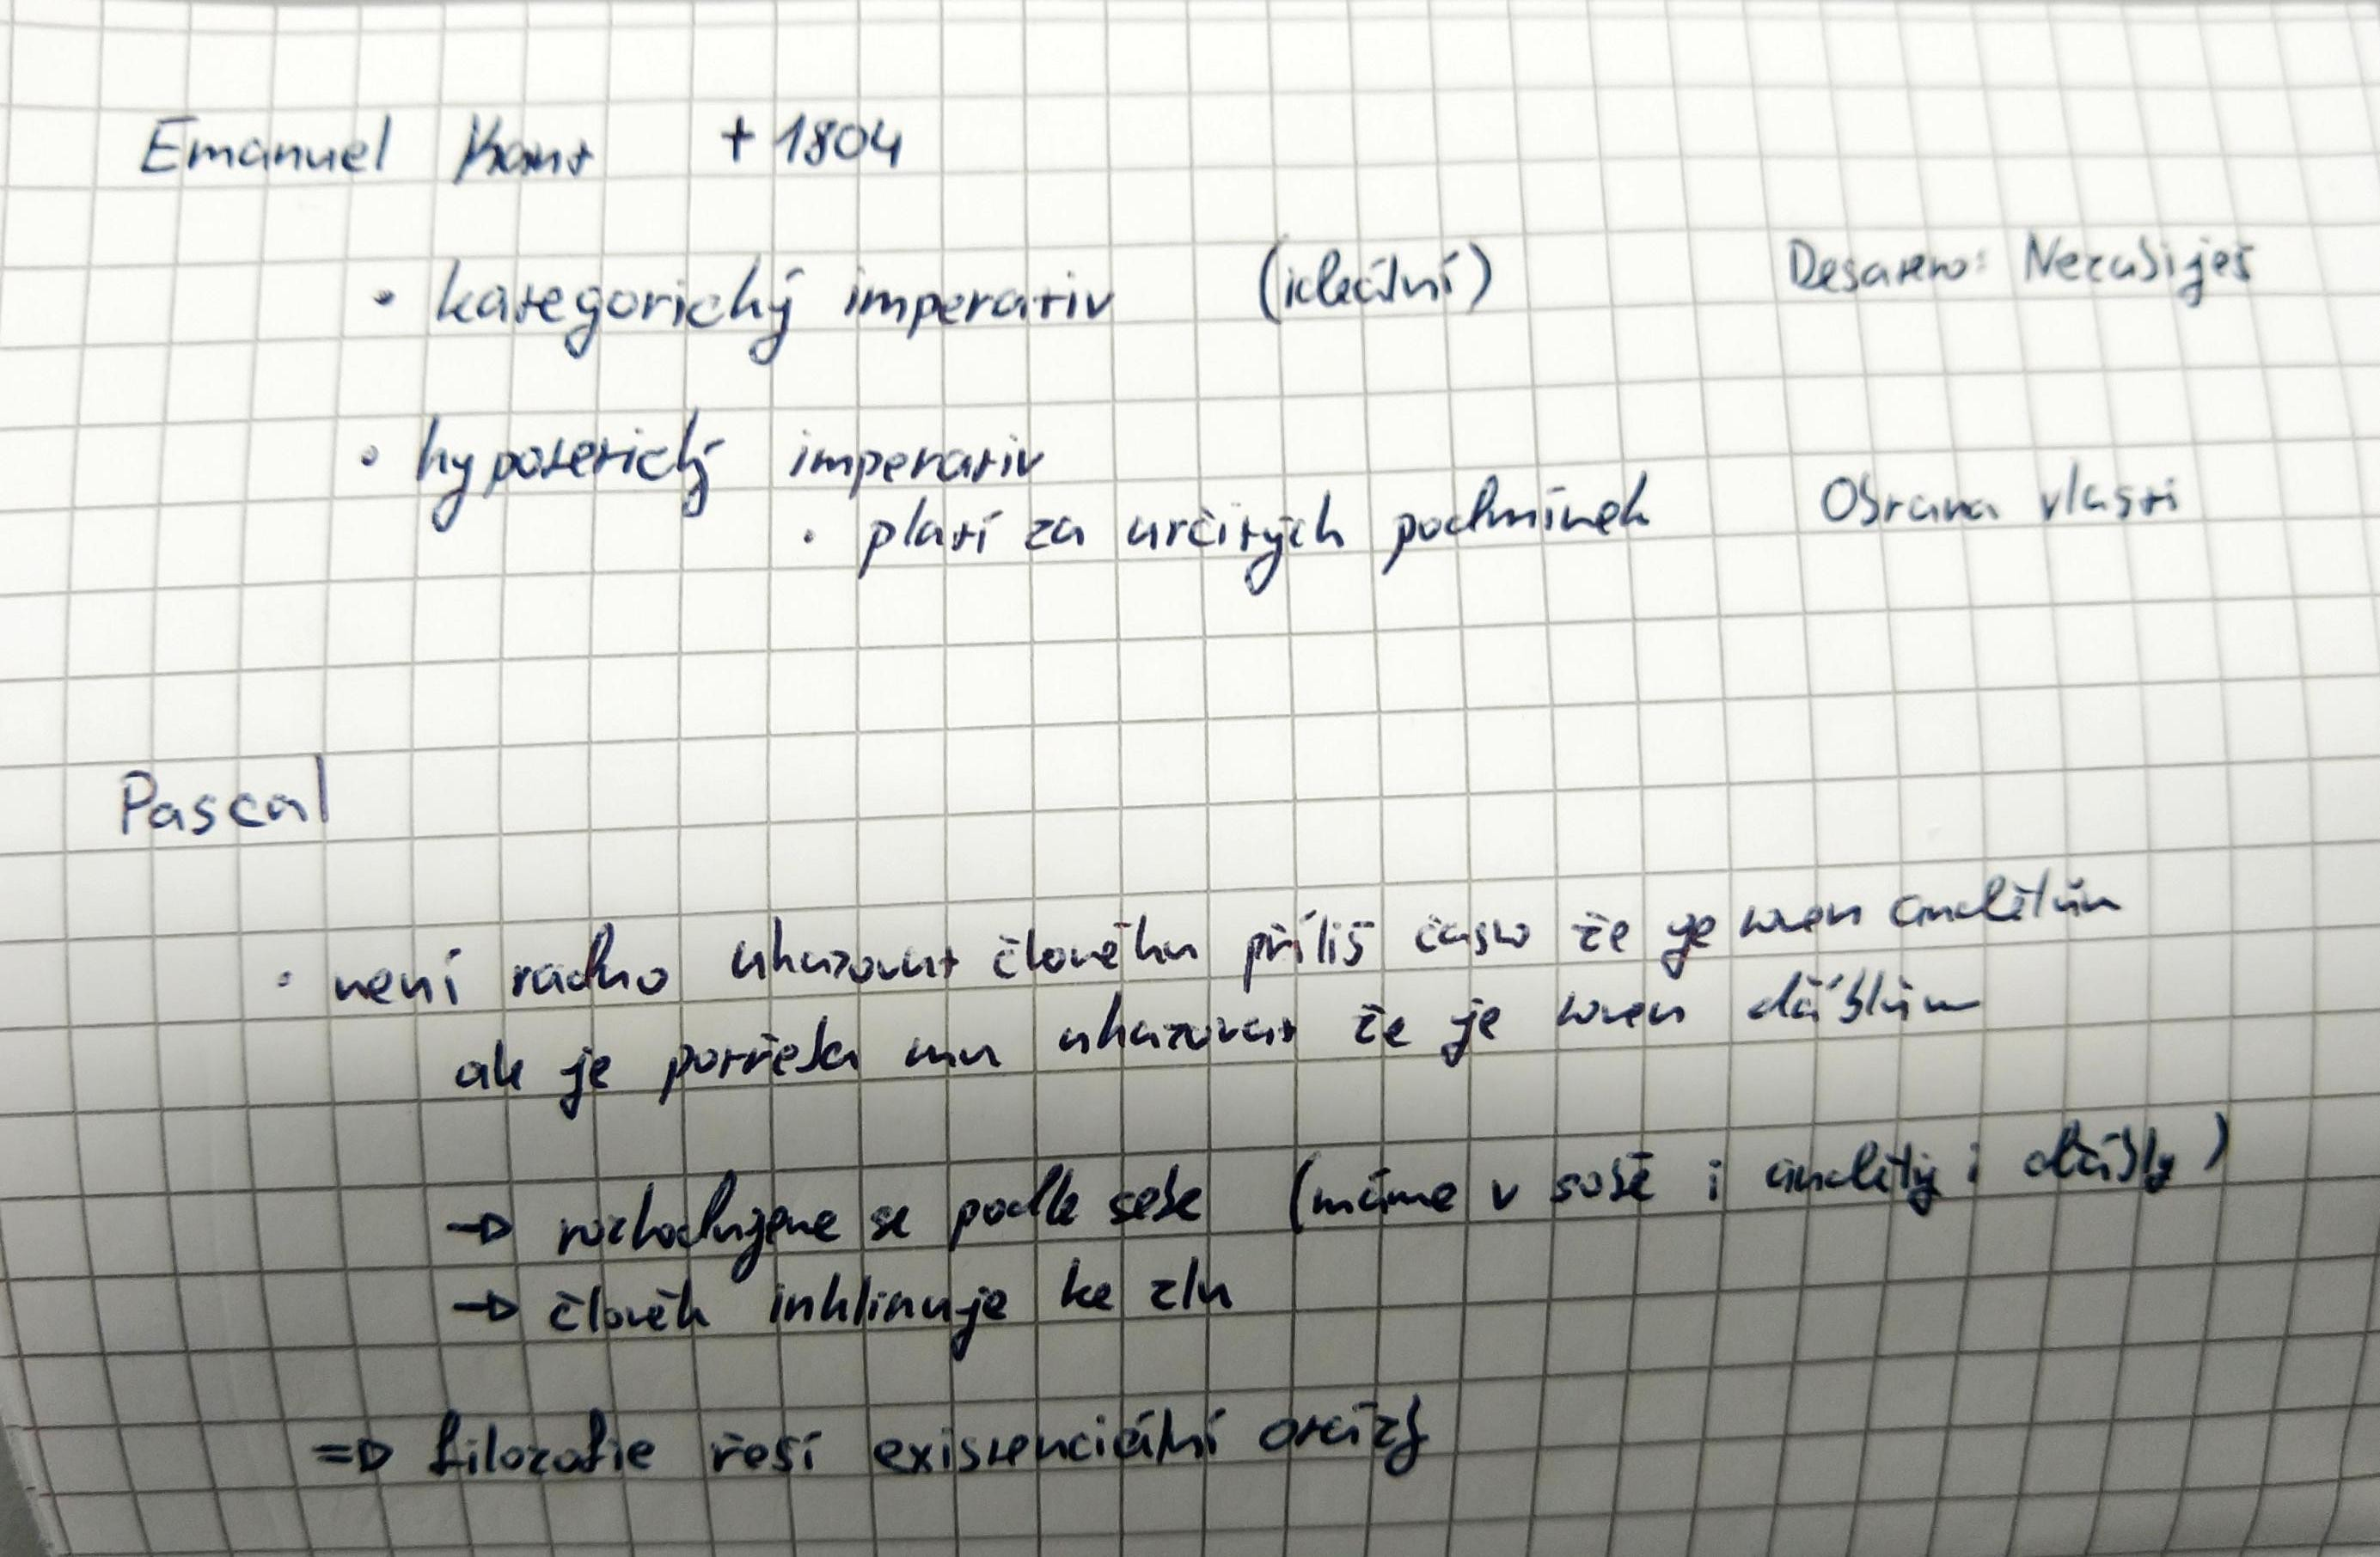 Emanuel Kant † 1804
• kategorický imperativ (ideální) Desatero: Nezabiješ
• hypotetický imperativ
• platí za určitých podmínek Obrana vlasti
Pascal
• není radno ukazovat člověku příliš často že je roven andělům
ale je potřeba mu ukazovat že je roven ďáblům
→ rozhodujeme se podle sebe (máme v sobě i anděly i ďábly)
→ člověk inklinuje ke zlu
⇒ filozofie řeší existenciální otázky